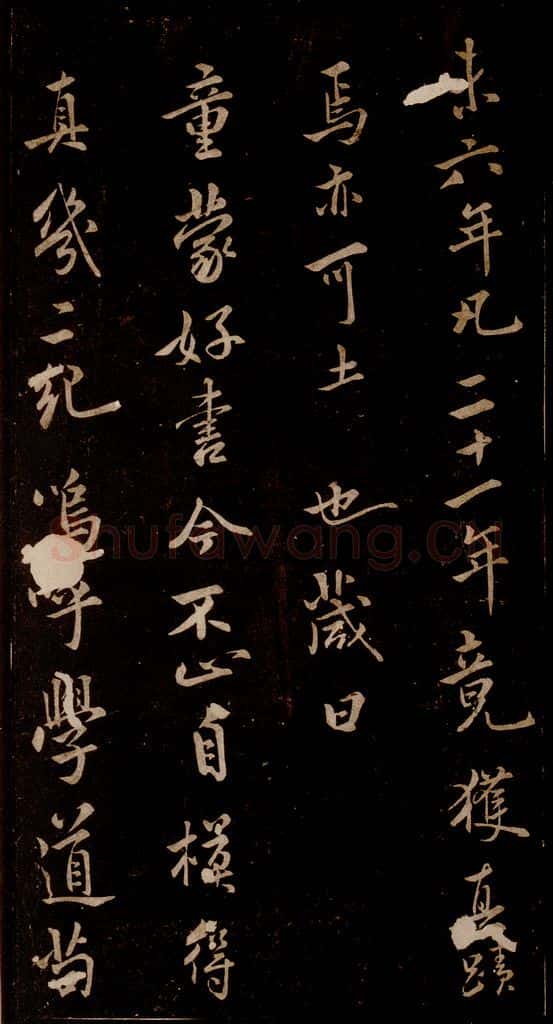 未六年凡二十一年竟獲真蹟
焉亦可土也歲日
童蒙好書今不止自模得
真幾二紀嗚呼學道當
shufawang.cn